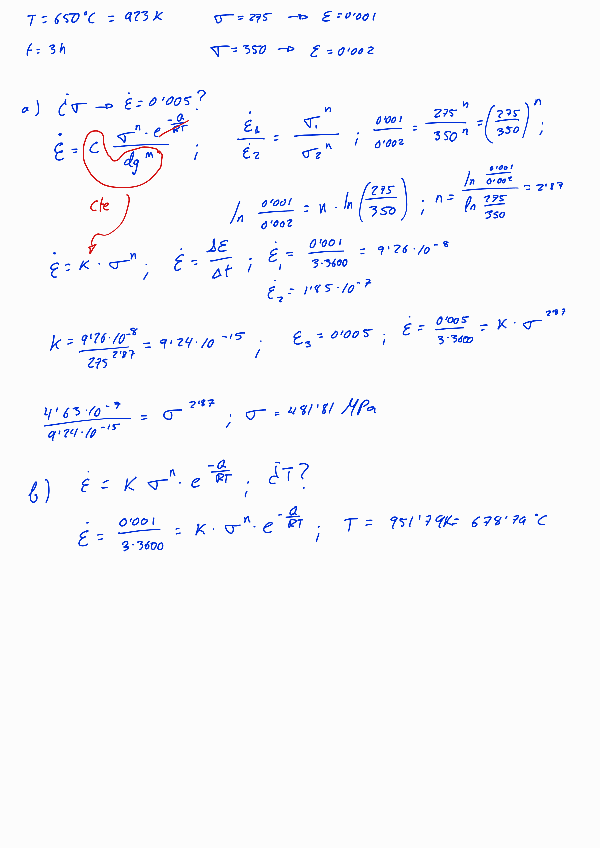 T = 650°C = 923 K σ = 275 → ε = 0'001
t = 3h σ = 350 → ε = 0'002
a) ¿σ → ε̇ = 0'005?
ε̇ = C σⁿ · e^(-Q/RT) / dg^m ; ε̇₁/ε̇₂ = σ₁ⁿ/σ₂ⁿ ; 0'001/0'002 = 275ⁿ/350ⁿ = (275/350)ⁿ ;
Cte
ln 0'001/0'002 = n · ln (275/350) ; n = ln (0'001/0'002) / ln (275/350) = 2'87
ε̇ = K · σⁿ ; ε̇ = Δε/Δt ; ε̇₁ = 0'001/3·3600 = 9'26·10⁻⁸
ε̇₂ = 1'85·10⁻⁷
K = 9'26·10⁻⁸/275^2'87 = 9'24·10⁻¹⁵ ; ε₃ = 0'005 ; ε̇ = 0'005/3·3600 = K · σ^2'87
4'63·10⁻⁷/9'24·10⁻¹⁵ = σ^2'87 ; σ = 481'81 MPa
b) ε̇ = K σⁿ · e^(-Q/RT) ; ¿T?
ε̇ = 0'001/3·3600 = K · σⁿ · e^(-Q/RT) ; T = 951'79K = 678'79 °C